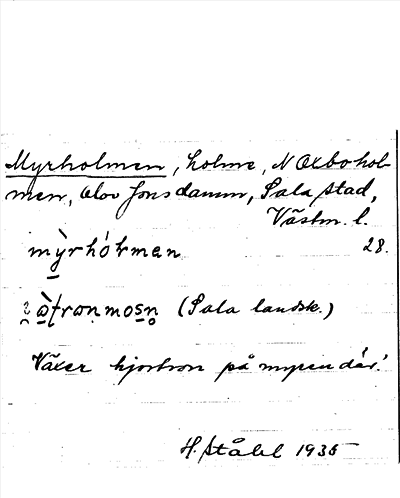 Myrholmen, holme, N Oxbohol-
men, Olov Jonsdamm, Sala stad,
Västm. l.
mỳrhólmen 28.
(Sala landsk.)
Växer hjortron på myren där!
H. Ståhl 1935